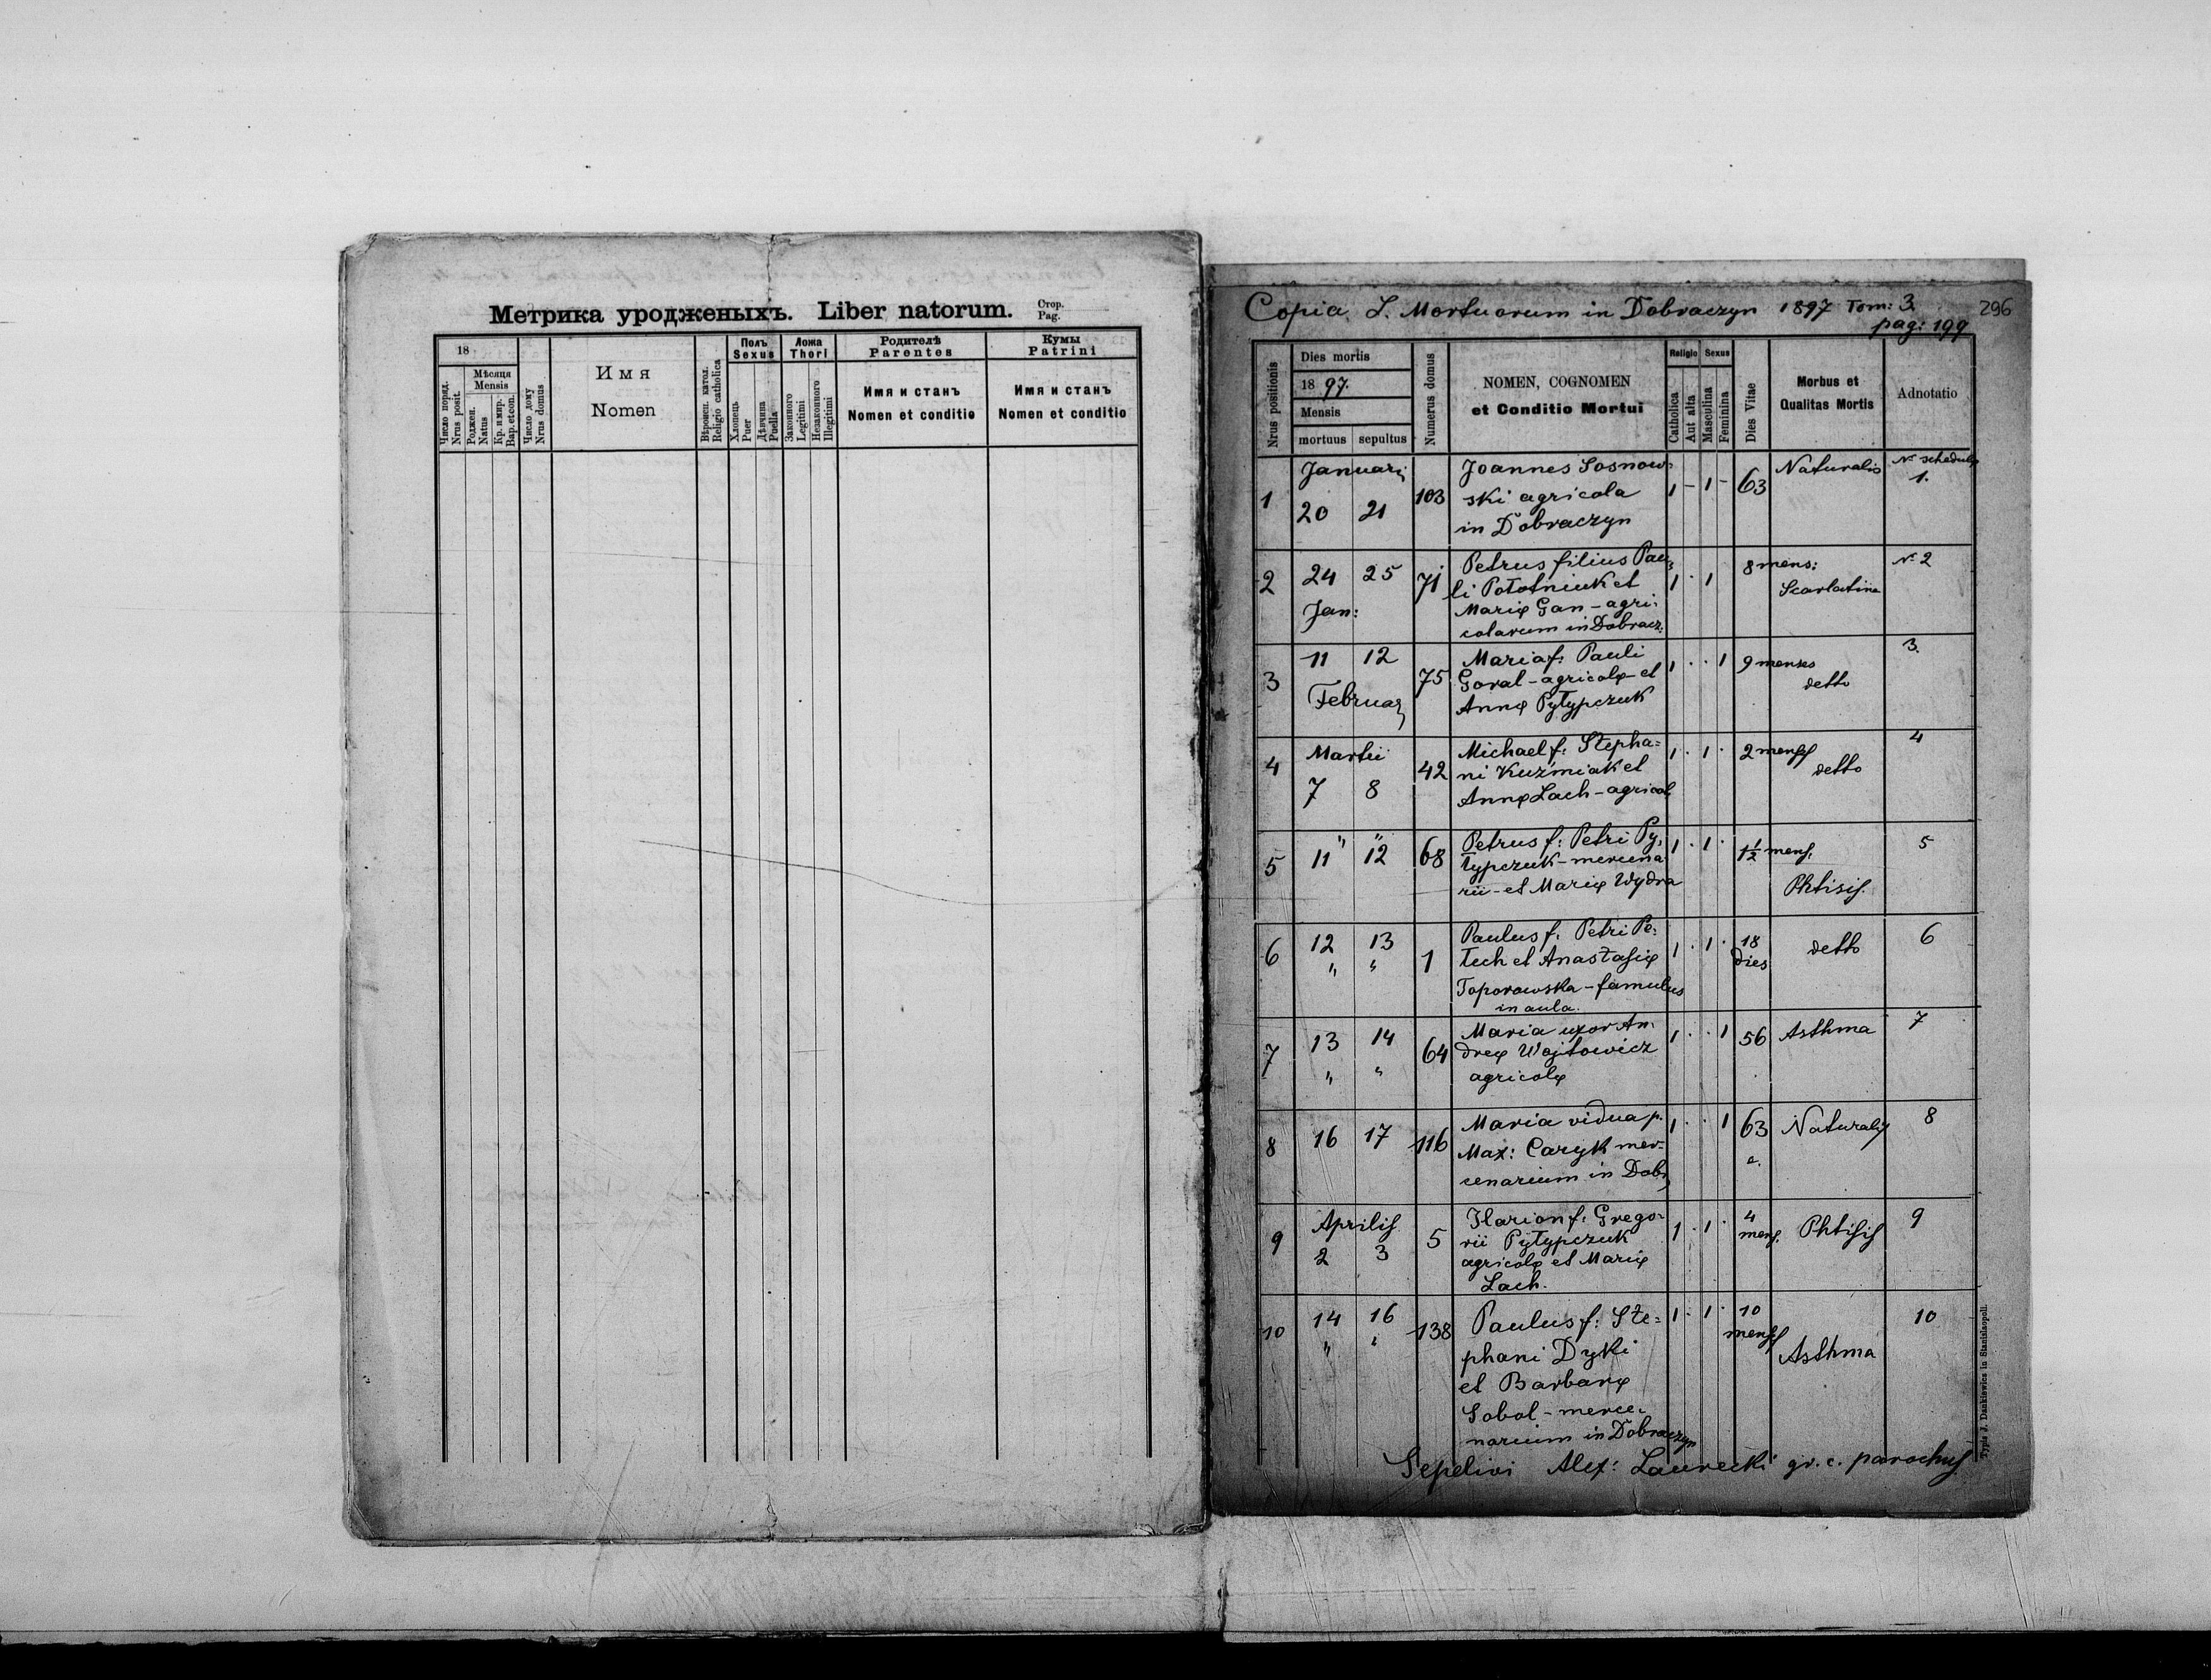 Метрика уродженыхъ. Liber natorum. Стор. Pag.
18
Число поряд. Nrus posit.
Мѣсяця Mensis
Роджен. Natus
Кр. и мир. Bap. et con.
Число дому Nrus domus
Имя
Nomen
Вѣроисп. катол. Religio catholica
Полъ Sexus
Хлопець Puer
Дѣвчина Puella
Ложа Thori
Законного Legitimi
Незаконного Illegitimi
Родителѣ
Parentes
Имя и станъ
Nomen et conditio
Кумы
Patrini
Имя и станъ
Nomen et conditio
Copia L. Mortuorum in Dobraczyn 1897 Tom: 3 296
pag: 199
Nrus positionis
Dies mortis
1897.
Mensis
mortuus sepultus
Numerus domus
NOMEN, COGNOMEN
et Conditio Mortui
Religio Sexus
Catholica
Aut alta
Masculina
Feminina
Dies Vitae
Morbus et
Qualitas Mortis
Adnotatio
1 Januarij 20 21 103 Joannes Sosnow-
ski agricola
in Dobraczyn
1 - 1 - 63 Naturalis N. schedulæ 1.
2 24 25 Jan: 71 Petrus filius Pau-
li Połotniuk et
Mariæ Gan - agri-
colarum in Dobracz:
1 . 1 8 mens: Scarlatina N. 2
3 11 12 Februar 75 Maria f: Pauli
Goral - agricolæ - et
Annæ Pyłypczuk
1 . . 1 9 menses detto 3.
4 Martii 7 8 42 Michael f: Stepha=
ni Kuźmiak et
Annæ Lach - agricol
1 . 1 . 2 mens detto 4
5 11 " 12 " 68 Petrus f: Petri Py-
łypczuk - mercena
rii - et Mariæ Wydra
1 . 1 . 1½ mens. Phtisis. 5
6 12 " 13 " 1 Paulus f. Petri Pe-
tech et Anastasiæ
Toporowska - famulus
in aula.
1 . 1 . 18 dies detto 6
7 13 " 14 " 64 Maria uxor An-
dreæ Wojtowicz
agricolæ
1 . . 1 56 Asthma 7
8 16 17 116 Maria vidua p.
Max: Caryk mer-
cenarium in Dob:
1 . . 1 63 a. Naturalis 8
9 Aprilis 2 3 5 Ilarion f: Grego-
rii Pyłypczuk
agricolæ et Mariæ
Lach.
1 . 1 . 4 mens. Phtisis 9
10 14 " 16 " 138 Paulus f: Ste=
phani Dyki
et Barbaræ
Sobol - merce-
narium in Dobraczyn
1 . 1 . 10 mens Asthma 10
Sepelivi Alex: Laurecki gr. c. parochus
Typis J. Dankiewicz in Stanislaopoli.